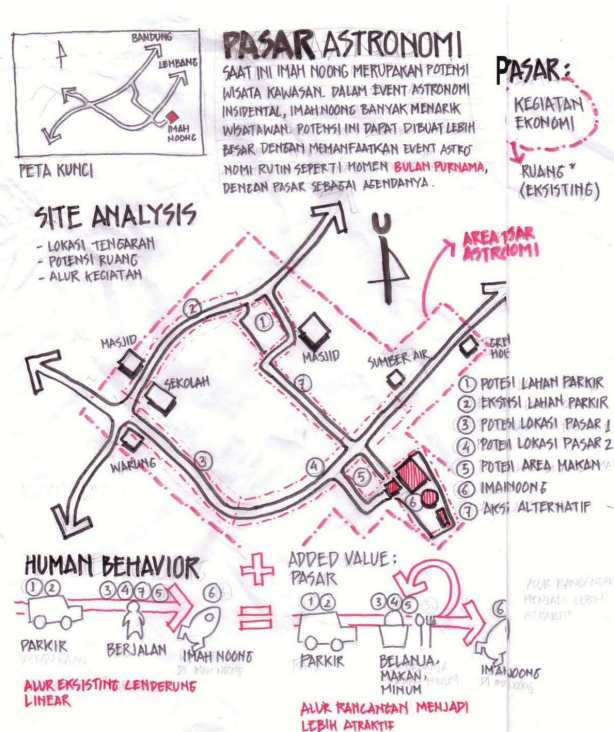 BANDUNG
LEMBANG
IMAH
NOONG
PETA KUNCI
PASAR ASTRONOMI
SAAT INI IMAH NOONG MERUPAKAN POTENSI
WISATA KAWASAN. DALAM EVENT ASTRONOMI
INSIDENTAL, IMAH NOONG BANYAK MENARIK
WISATAWAN. POTENSI INI DAPAT DIBUAT LEBIH
BESAR DENGAN MEMANFAATKAN EVENT ASTRO
NOMI RUTIN SEPERTI MOMEN BULAN PURNAMA,
DENGAN PASAR SEBAGAI AGENDANYA.
PASAR:
KEGIATAN
EKONOMI
RUANG*
(EKSISTING)
SITE ANALYSIS
- LOKASI TENGARAN
- POTENSI RUANG
- ALUR KEGIATAN
U
AREA PSAR
ASTROMI
MASJID
SEKOLAH
WARUNG
MASJID
SUMBER AIR
1 2 3 4 5 6 7
1 POTESI LAHAN PARKIR
2 EKSTISI LAHAN PARKIR
3 POTESI LOKASI PASAR 1
4 POTESI LOKASI PASAR 2
5 POTESI AREA MAKAN
6 IMAINOONG
7 AKSI ALTERNATIF
HUMAN BEHAVIOR
1 2 3 4 7 5 6
PARKIR
BERJALAN
IMAH NOONG
ALUR EKSISTING CENDERUNG
LINEAR
ADDED VALUE:
PASAR
1 2 3 4 5 6
PARKIR
BELANJA
MAKAN
MINUM
IMAINOONG
ALUR RANCANGAN MENJADI
LEBIH ATRAKTIF
ALUR RANCANGAN
MENJADI LEBIH
ATRAKTIF